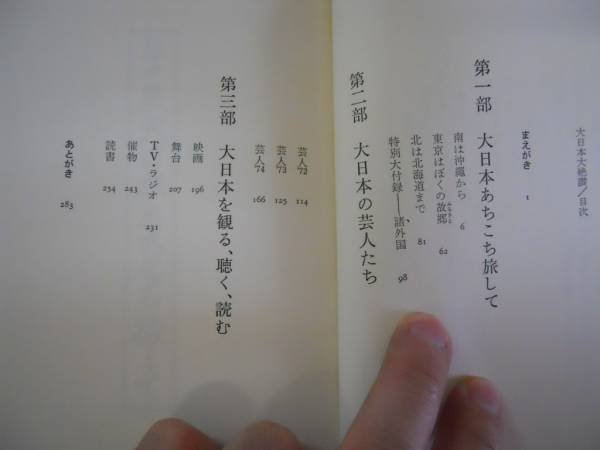 大日本大絶讃/目次
まえがき 1
第一部 大日本あちこち旅して
南は沖縄から 6
東京はぼくの故郷 62
ふるさと
北は北海道まで 81
特別大付録——諸外国 98
第二部 大日本の芸人たち
芸人'72 114
芸人'73 125
芸人'74 166
第三部 大日本を観る、聴く、読む
映画 196
舞台 207
TV・ラジオ 231
催物 243
読書 254
あとがき 283